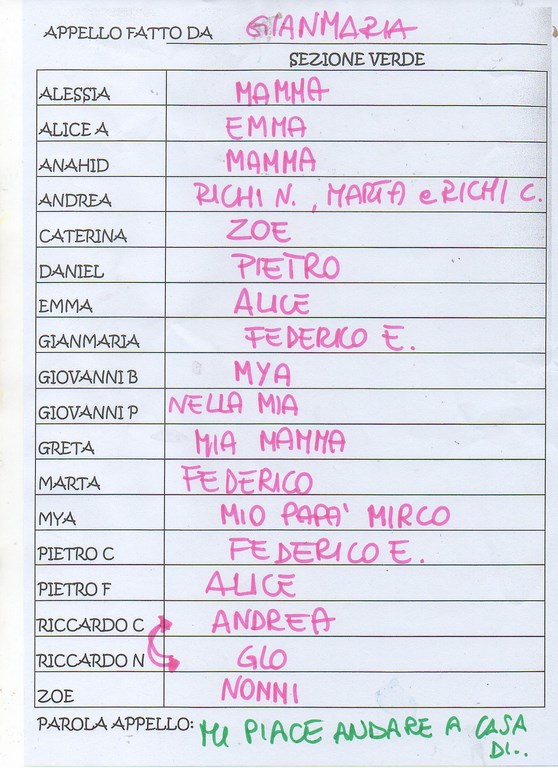 APPELLO FATTO DA GIANMARIA
SEZIONE VERDE
ALESSIA MAMMA
ALICE A EMMA
ANAHID MAMMA
ANDREA RICHI N., MARTA e RICHI C.
CATERINA ZOE
DANIEL PIETRO
EMMA ALICE
GIANMARIA FEDERICO E.
GIOVANNI B MYA
GIOVANNI P NELLA MIA
GRETA MIA MAMMA
MARTA FEDERICO
MYA MIO PAPA' MIRCO
PIETRO C FEDERICO E.
PIETRO F ALICE
RICCARDO C ANDREA
RICCARDO N GIO
ZOE NONNI
PAROLA APPELLO: MI PIACE ANDARE A CASA
DI..